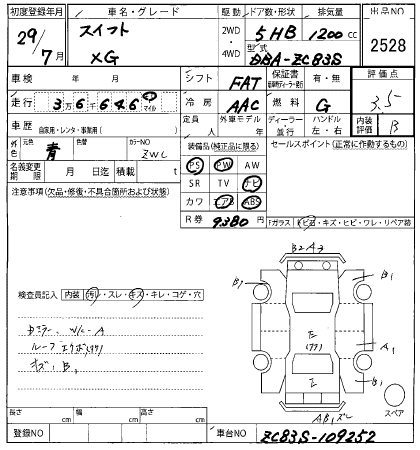 初度登録年月 車名・グレード 駆動 ドア数・形状 排気量 出品NO
29/7月 スイフト XG 2WD・4WD 5HB 1200cc 2528
型式 DBA-ZC83S
車検 年 月 シフト FAT 保証書 有・無 評価点
走行 3万6千646 キロ マイル 冷房 AAC 燃料 G 3.5
車歴 自家用・レンタ・事業用( ) 定員 人 外車モデル 年 ディーラー 並行 ハンドル 左・右 内装評価 B
外色 元色 青 色替 カラーNO ZWL 装備品(純正品に限る) セールスポイント(正常に作動するもの)
PS PW AW
名義変更期限 月 日迄 積載 t SR TV ナビ
注意事項(欠品・修復・不具合箇所および状態) カワ エアB ABS
R券 9380円 Fガラス トビ石・キズ・ヒビ・ワレ・リペア跡
B2A3
B1
検査員記入 内装 汚レ・スレ・キズ・キレ・コゲ・穴
W/C-A
A1
B1
スペア
長さ cm 幅 cm 高さ cm
登録NO 車台NO ZC83S-109252